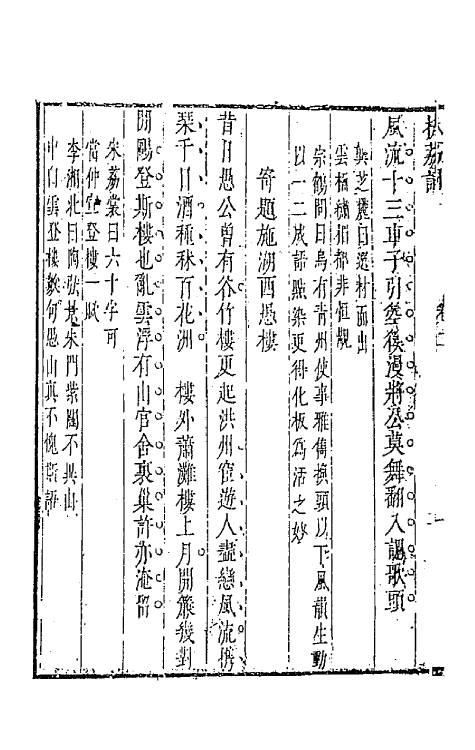 扶荔詞
卷三
風流十三車子引壑後漫將公莫舞翻入諷歌頭
龔芝麓曰選材而出
雲楣繡栭都非恒覩
宗鶴問曰烏有青州使事雅雋換頭以下風韻生動
以一二成語點染更得化板為活之妙
寄題施湖西愚樓
昔日愚公曾有谷竹樓更起洪州宦遊人盡戀風流攜
琴千日酒種秫百花洲 樓外蕭灘樓上月開簾幾對
閒鷗登斯樓也亂雲浮有山官舍裏巢許亦淹留
朱荔裳曰六十字可
當仲宣登樓一賦
李湘北曰陶弘景朱門紫闥不異山
中白雲登樓數何愚山真不愧斯語